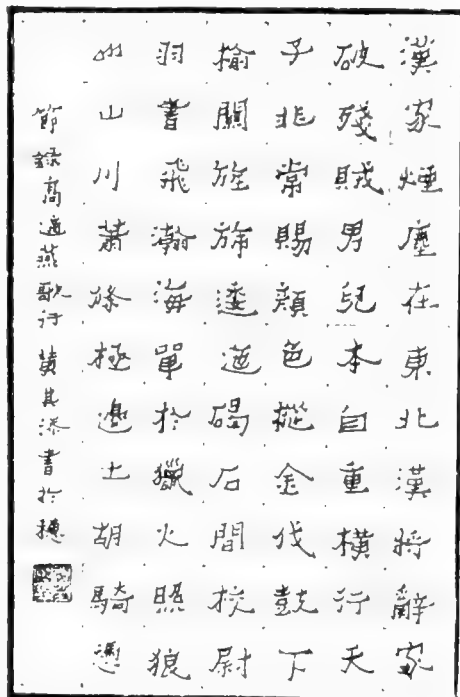 漢家煙塵在東北漢將辭家
破殘賊男兒本自重橫行天
子非常賜顏色摐金伐鼓下
榆關旌旆逶迤碣石間校尉
羽書飛瀚海單於獵火照狼
山山川蕭條極邊土胡騎憑
節錄高適燕歌行黃其添書於穗